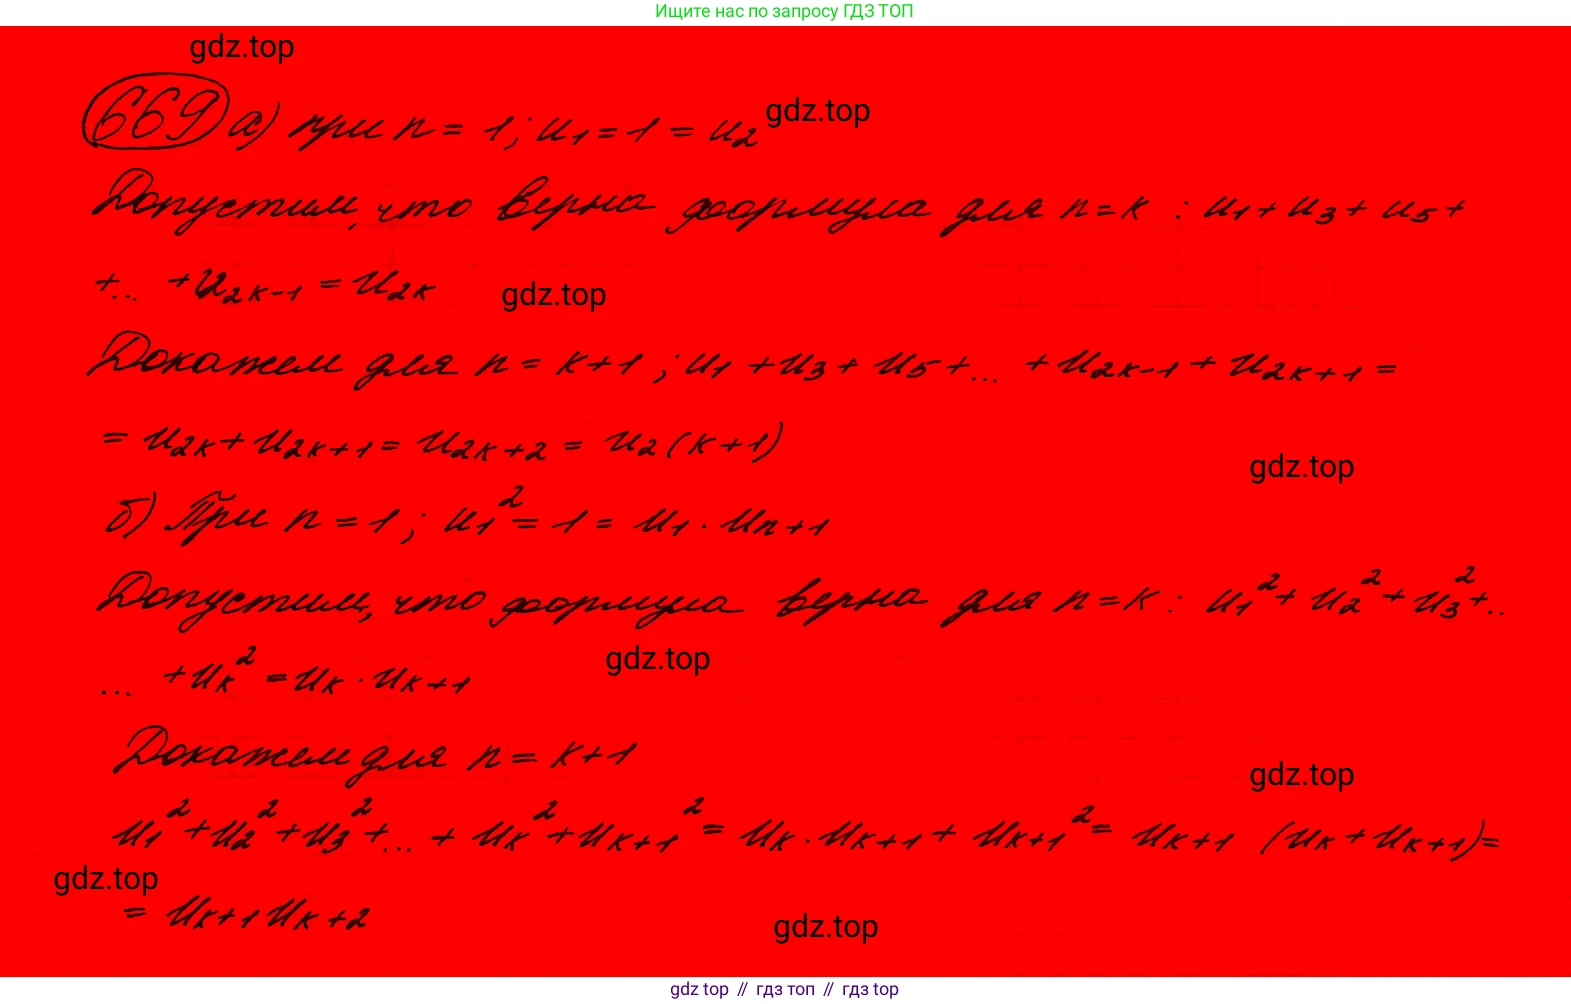 Ищите нас по запросу ГДЗ ТОП
gdz.top
669 а) при n = 1; u₁ = 1 = u₂
gdz.top
Допустим, что верна формула для n = k : u₁ + u₃ + u₅ +
+... + u₂ₖ₋₁ = u₂ₖ
gdz.top
Докажем для n = k+1 ; u₁ + u₃ + u₅ +... + u₂ₖ₋₁ + u₂ₖ₊₁ =
= u₂ₖ + u₂ₖ₊₁ = u₂ₖ₊₂ = u₂(k+1)
gdz.top
б) При n = 1; u₁² = 1 = u₁ · uₙ₊₁
Допустим, что формула верна для n = k : u₁² + u₂² + u₃² +..
... + uₖ² = uₖ · uₖ₊₁
gdz.top
Докажем для n = k+1
gdz.top
u₁² + u₂² + u₃² +... + uₖ² + uₖ₊₁² = uₖ · uₖ₊₁ + uₖ₊₁² = uₖ₊₁ (uₖ + uₖ₊₁) =
gdz.top
= uₖ₊₁ uₖ₊₂
gdz.top
gdz top // гдз топ // гдз top